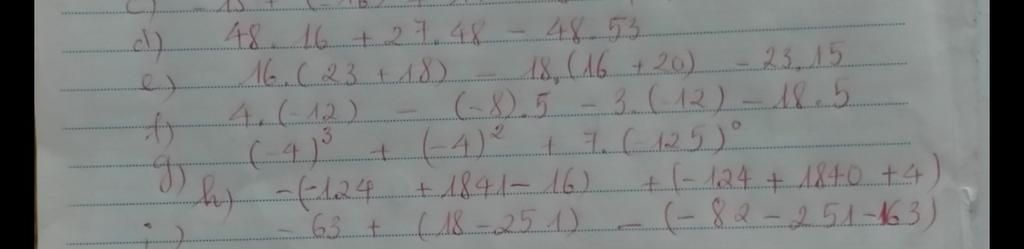 d) 48.16 + 27.48 - 48.53
e) 16.(23 + 18) - 18.(16 + 20) - 23.15
f) 4.(-12) - (-8).5 - 3.(-12) - 18.5
g) (-4)³ + (-4)² + 7.(-125)⁰
h) -(-124 + 1841 - 16) + (-124 + 1840 + 4)
i) - 63 + (18 - 251) - (-82 - 251 - 163)